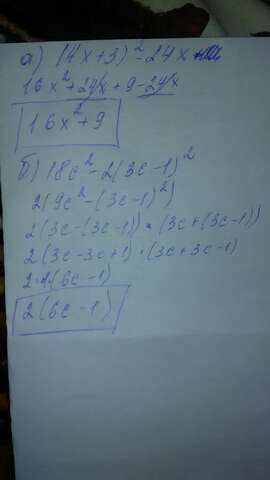 а) (4x+3)²-24x
16x²+24x+9-24x
16x²+9
б) 18c²-2(3c-1)²
2(9c²-(3c-1)²)
2(3c-(3c-1))·(3c+(3c-1))
2(3c-3c+1)·(3c+3c-1)
2·1(6c-1)
2(6c-1)